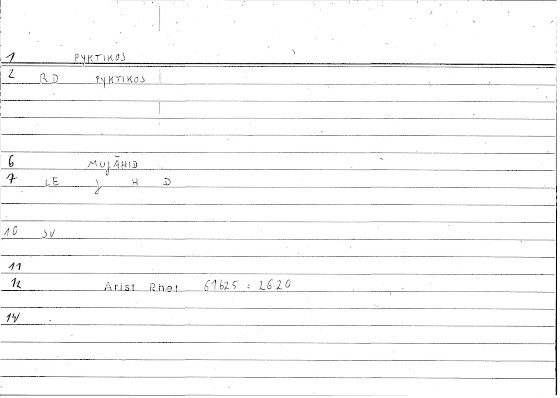 1 PYKTIKOS
2 RD PYKTIKOS
6 MUJĀHID
7 LE J H D
10 SV
11
12 Arist Rhet 61625 = 2620
14